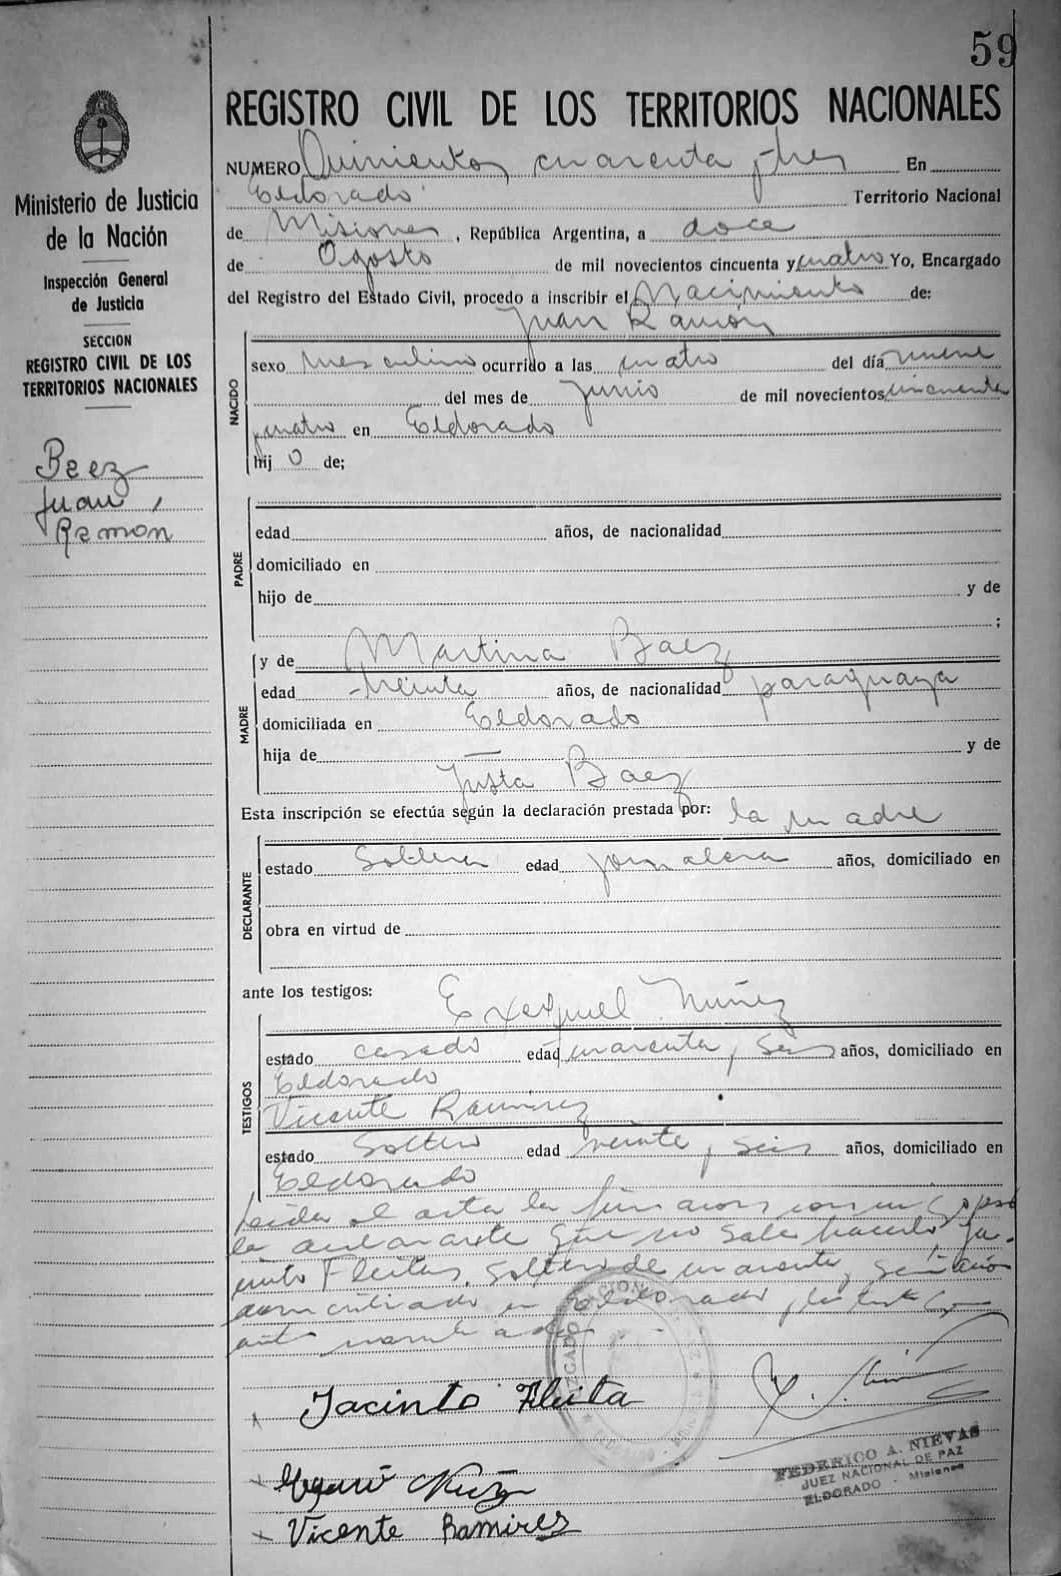 59
REGISTRO CIVIL DE LOS TERRITORIOS NACIONALES
NUMERO Quinientos cuarenta y tres En
Eldorado Territorio Nacional
de Misiones, República Argentina, a doce
de Agosto de mil novecientos cincuenta y cuatro Yo, Encargado
del Registro del Estado Civil, procedo a inscribir el Nacimiento de:
Juan Ramón
NACIDO
sexo masculino ocurrido a las cuatro del día nueve
del mes de Junio de mil novecientos cincuenta
y cuatro en Eldorado
hij o de;
PADRE
edad años, de nacionalidad
domiciliado en
hijo de y de
;
MADRE
y de Martina Baez
edad treinta años, de nacionalidad paraguaya
domiciliada en Eldorado
hija de y de
Justa Baez
Esta inscripción se efectúa según la declaración prestada por: la madre
DECLARANTE
estado soltera edad jornalera años, domiciliado en
obra en virtud de
ante los testigos: Exequiel Nuñez
TESTIGOS
estado casado edad cuarenta y seis años, domiciliado en
Eldorado
Vicente Ramirez
estado soltero edad veinte y seis años, domiciliado en
Eldorado
Leida el acta la firmaron conmigo por
la declarante que no sabe hacerlo Ja-
cinto Fleitas, soltero de cuarenta y seis años
domiciliado en Eldorado y los testigos
ante
Jacinto Fleita
Nuñez
Vicente Ramires
FEDERICO A. NIEVAS
JUEZ NACIONAL DE PAZ
ELDORADO - Misiones
Ministerio de Justicia
de la Nación
Inspección General
de Justicia
SECCION
REGISTRO CIVIL DE LOS
TERRITORIOS NACIONALES
Baez
Juan
Ramon